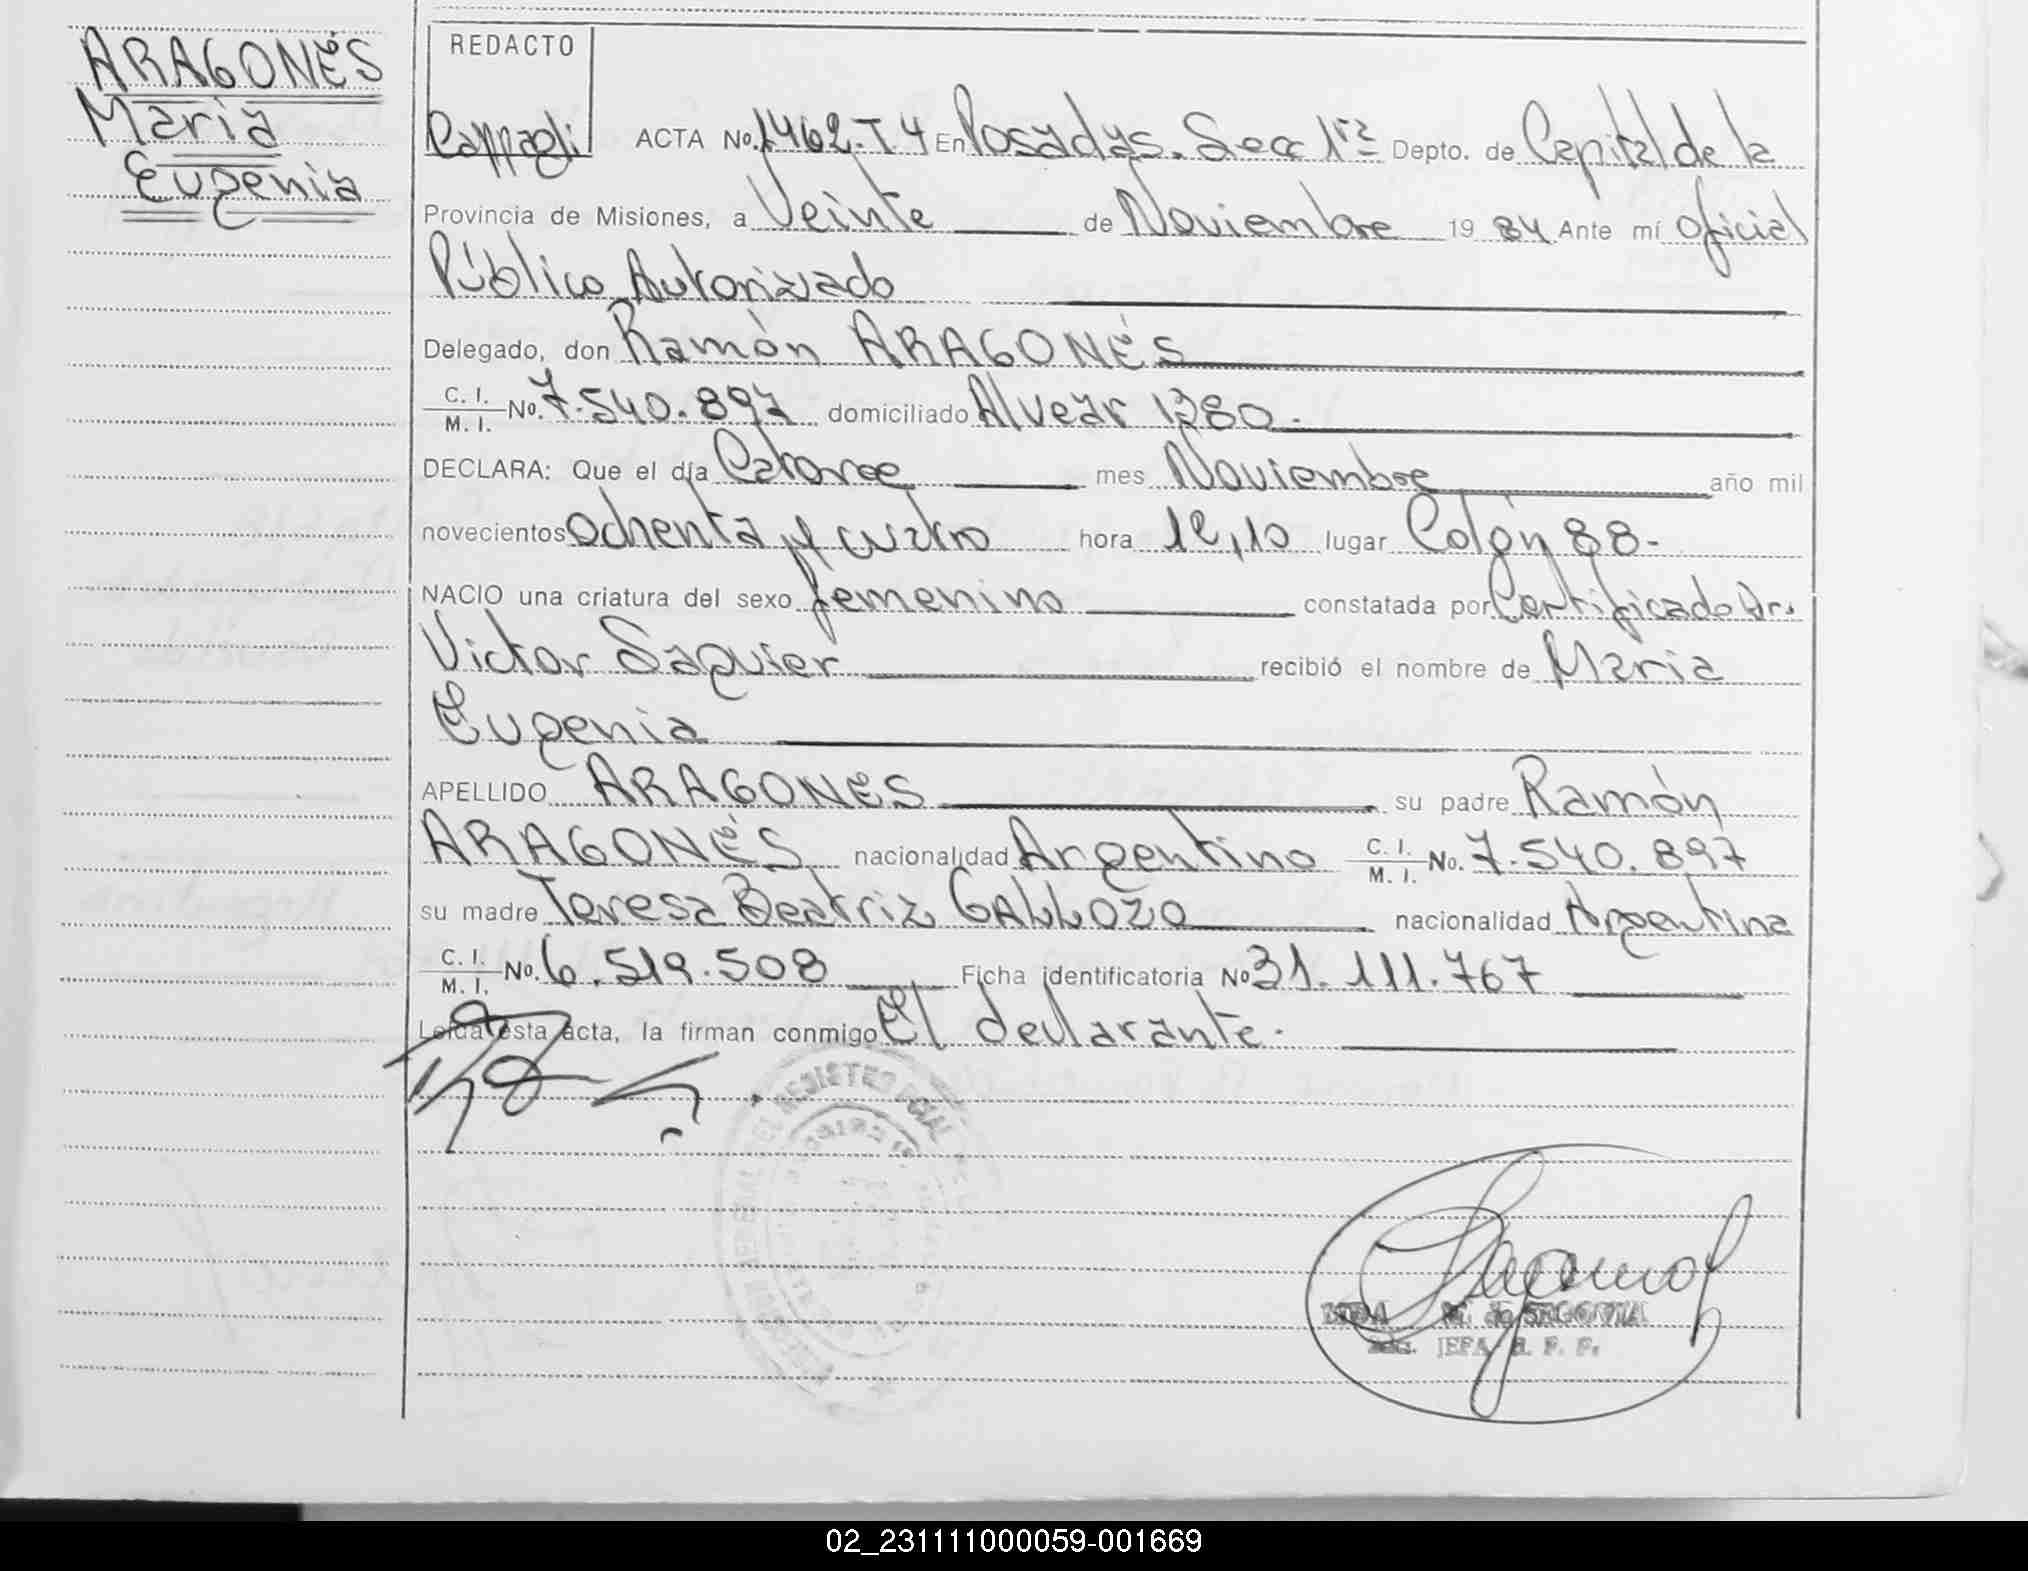 ARAGONÉS
Maria
Eugenia
REDACTO
ACTA No. 1462-T4 En Posadas. Secc 1ra Depto. de Capital de la
Provincia de Misiones, a Veinte de Noviembre 1984 Ante mí oficial
Público Autorizado
Delegado, don Ramón ARAGONÉS
C. I. / M. I. No. 7.540.897 domiciliado Alvear 1380.
DECLARA: Que el día Catorce mes Noviembre año mil
novecientos ochenta y cuatro hora 12,10 lugar Colón 88-
NACIO una criatura del sexo femenino constatada por Certificado Dr.
Victor Saguier recibió el nombre de Maria
Eugenia
APELLIDO ARAGONES su padre Ramón
ARAGONÉS nacionalidad Argentino C. I. / M. I. No. 7.540.897
su madre Teresa Beatriz GALLOZO nacionalidad Argentina
C. I. / M. I. No. 6.519.508 Ficha identificatoria No 31.111.767
Leída esta acta, la firman conmigo El declarante.
M. de SEGOVIA
JEFA
02_231111000059-001669